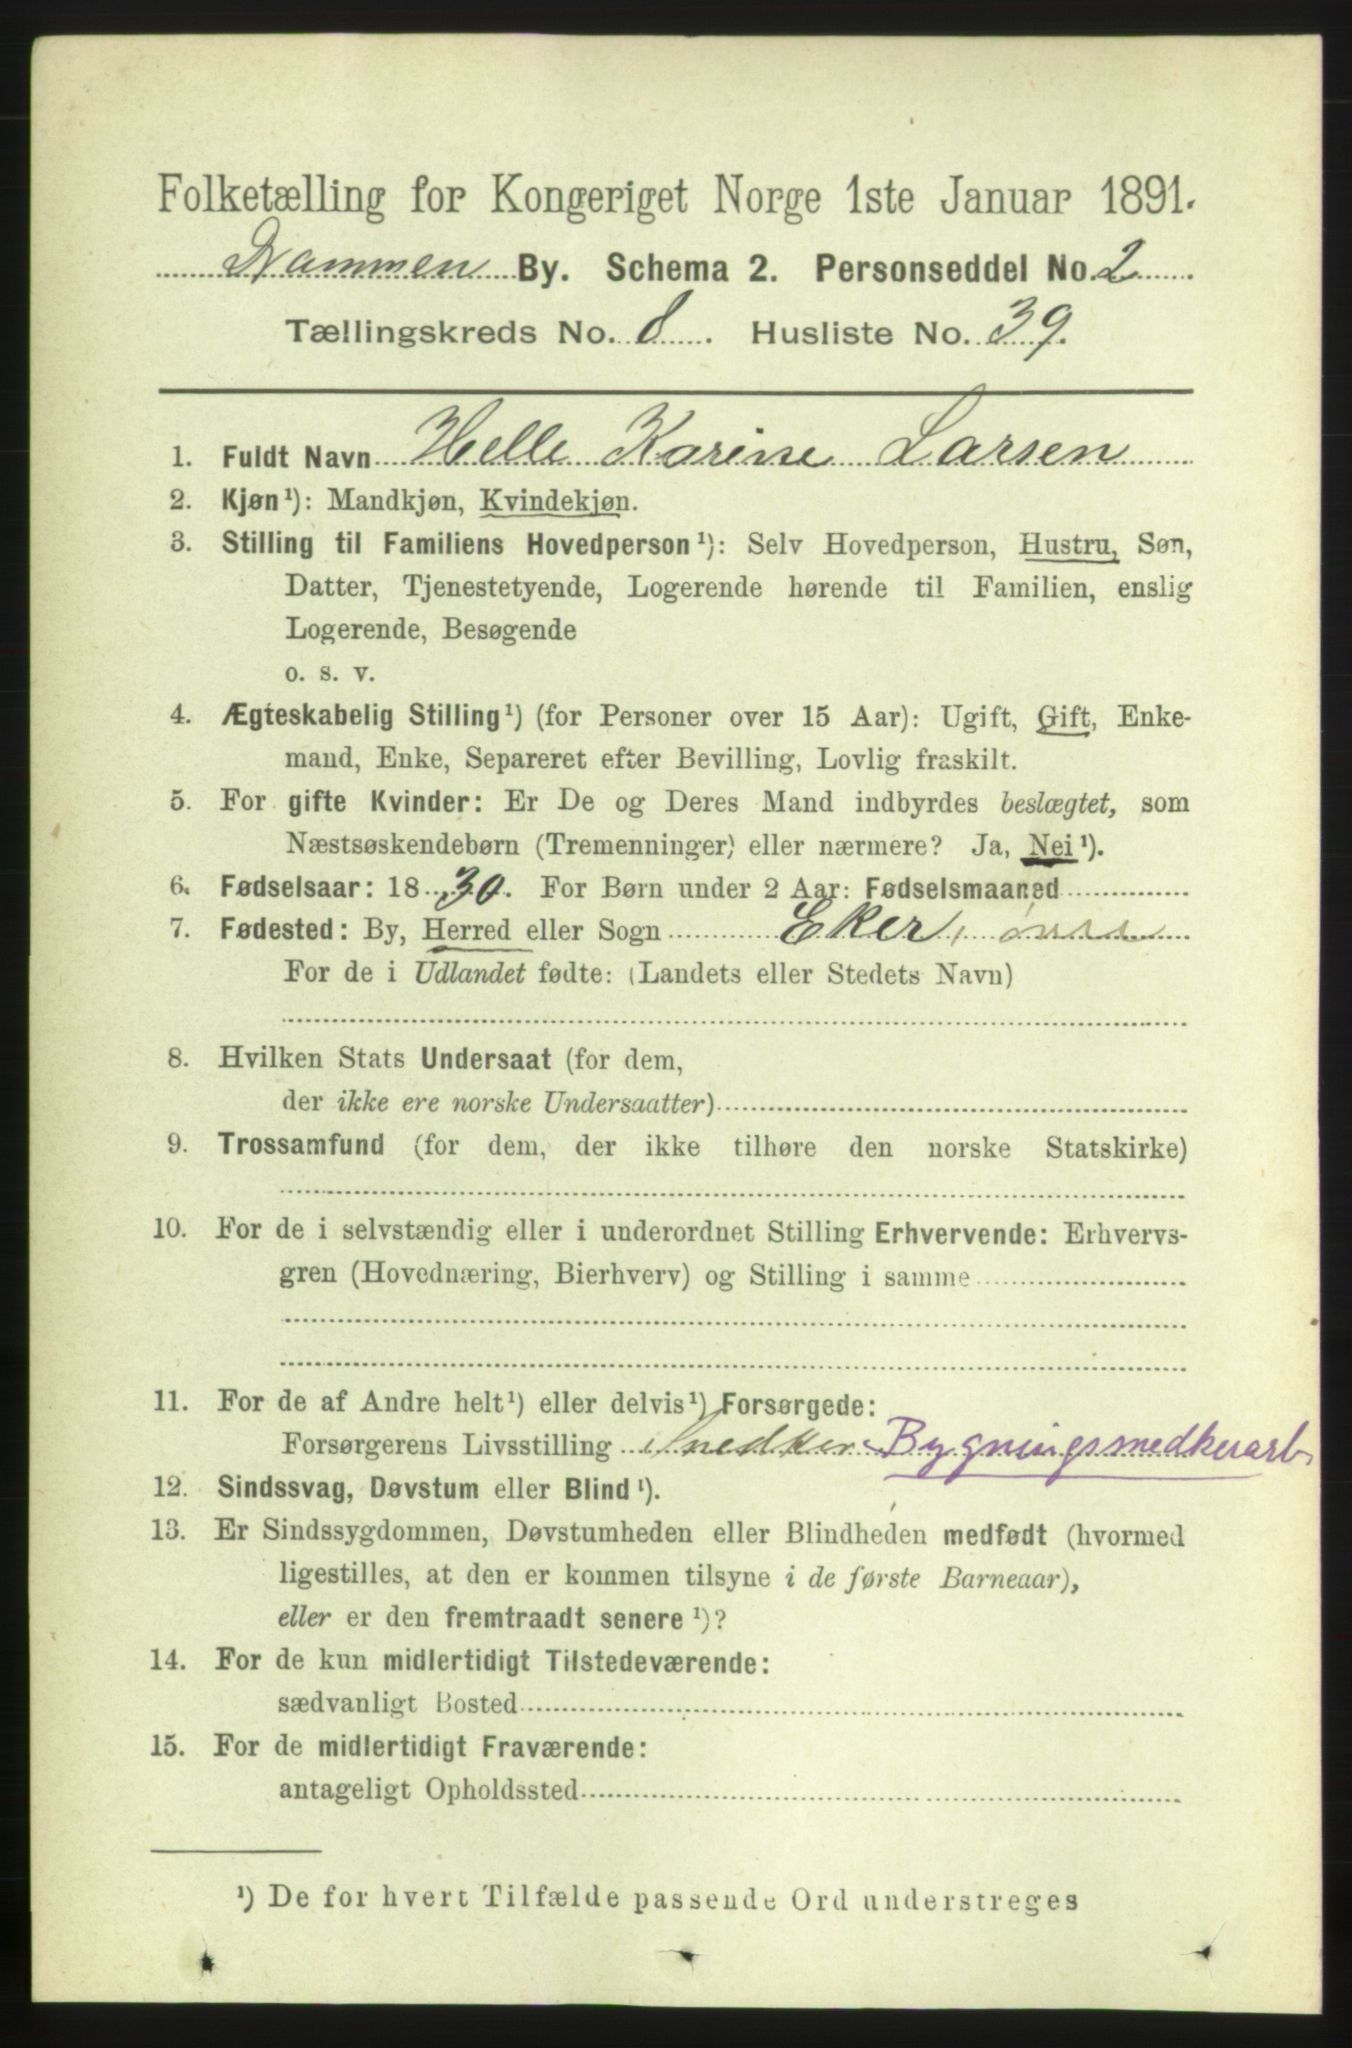 Folketælling for Kongeriget Norge 1ste Januar 1891.
Drammen By. Schema 2. Personseddel No. 2
Tællingskreds No. 8. Husliste No. 39.
1. Fuldt Navn Helle Karine Larsen
2. Kjøn¹): Mandkjøn, Kvindekjøn.
3. Stilling til Familiens Hovedperson¹): Selv Hovedperson, Hustru, Søn,
Datter, Tjenestetyende, Logerende hørende til Familien, enslig
Logerende, Besøgende
o. s. v.
4. Ægteskabelig Stilling¹) (for Personer over 15 Aar): Ugift, Gift, Enke-
mand, Enke, Separeret efter Bevilling, Lovlig fraskilt.
5. For gifte Kvinder: Er De og Deres Mand indbyrdes beslægtet, som
Næstsøskendebørn (Tremenninger) eller nærmere? Ja, Nei¹).
6. Fødselsaar: 1830. For Børn under 2 Aar: Fødselsmaaned
7. Fødested: By, Herred eller Sogn Eker,
For de i Udlandet fødte: (Landets eller Stedets Navn)
8. Hvilken Stats Undersaat (for dem,
der ikke ere norske Undersaatter)
9. Trossamfund (for dem, der ikke tilhøre den norske Statskirke)
10. For de i selvstændig eller i underordnet Stilling Erhvervende: Erhvervs-
gren (Hovednæring, Bierhverv) og Stilling i samme
11. For de af Andre helt¹) eller delvis¹) Forsørgede:
Forsørgerens Livsstilling Snedker Bygningsmedkerarb
12. Sindssvag, Døvstum eller Blind¹).
13. Er Sindssygdommen, Døvstumheden eller Blindheden medfødt (hvormed
ligestilles, at den er kommen tilsyne i de første Barneaar),
eller er den fremtraadt senere¹)?
14. For de kun midlertidigt Tilstedeværende:
sædvanligt Bosted
15. For de midlertidigt Fraværende:
antageligt Opholdssted
¹) De for hvert Tilfælde passende Ord understreges